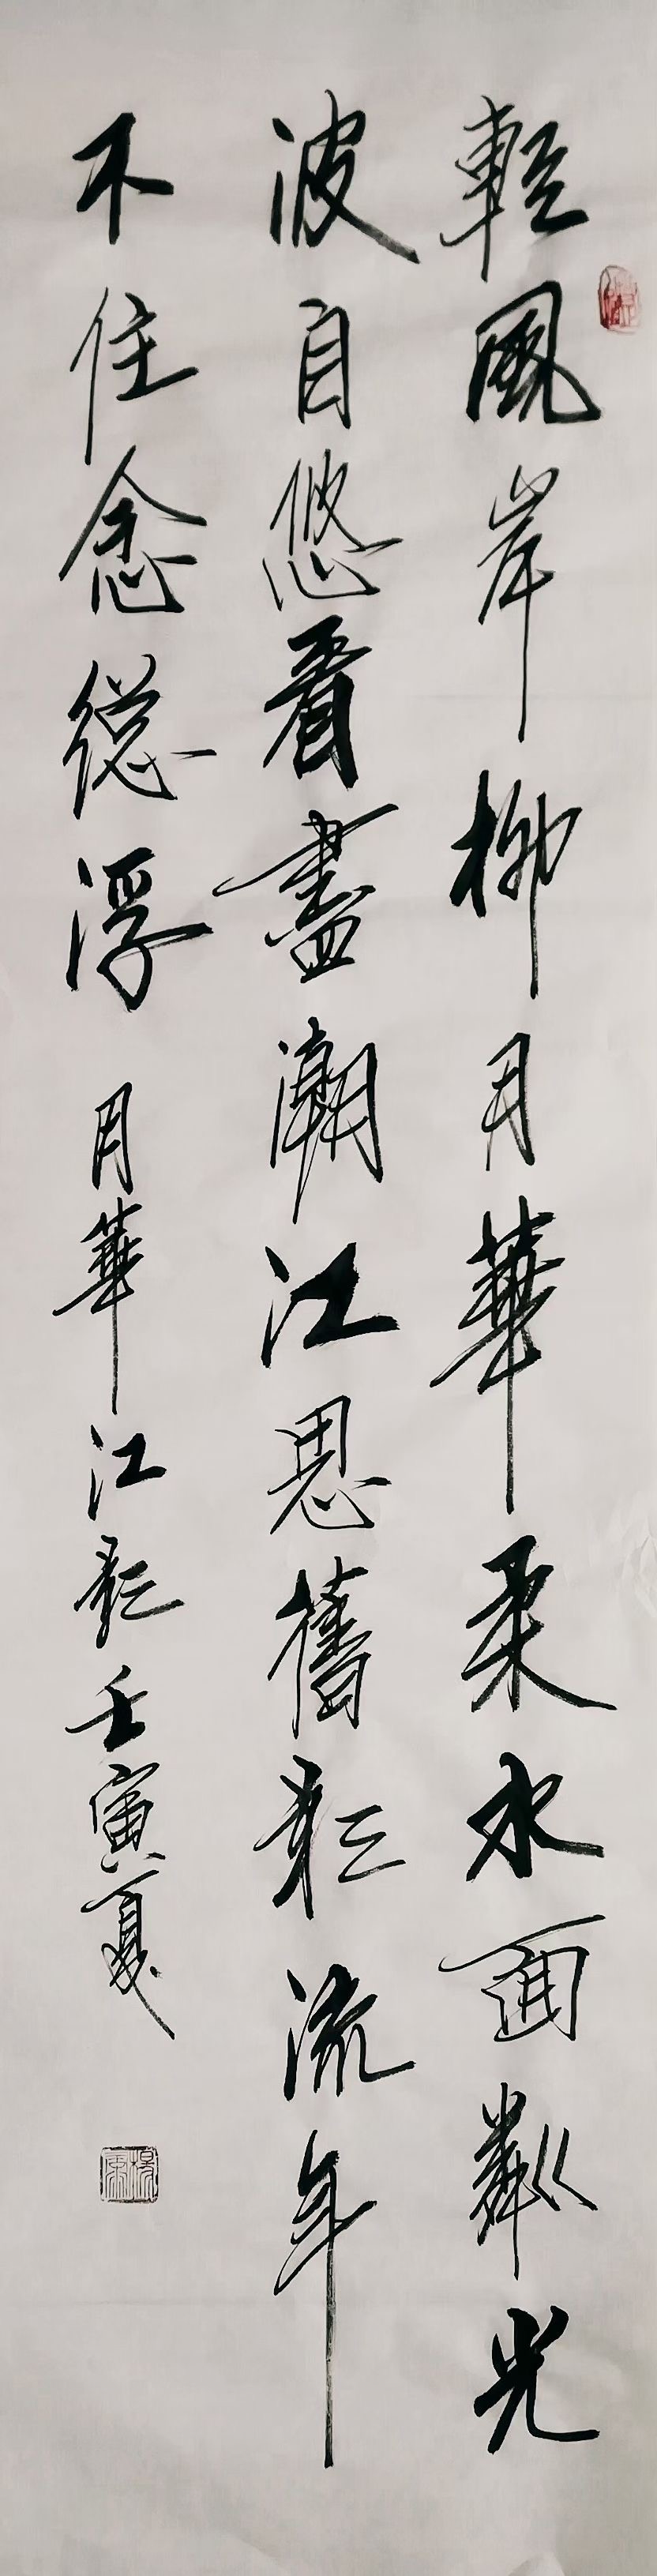 輕風岸柳月華柔水面粼光
波自悠看盡潮江思舊影流年
不住念總浮 月華江影壬寅夏